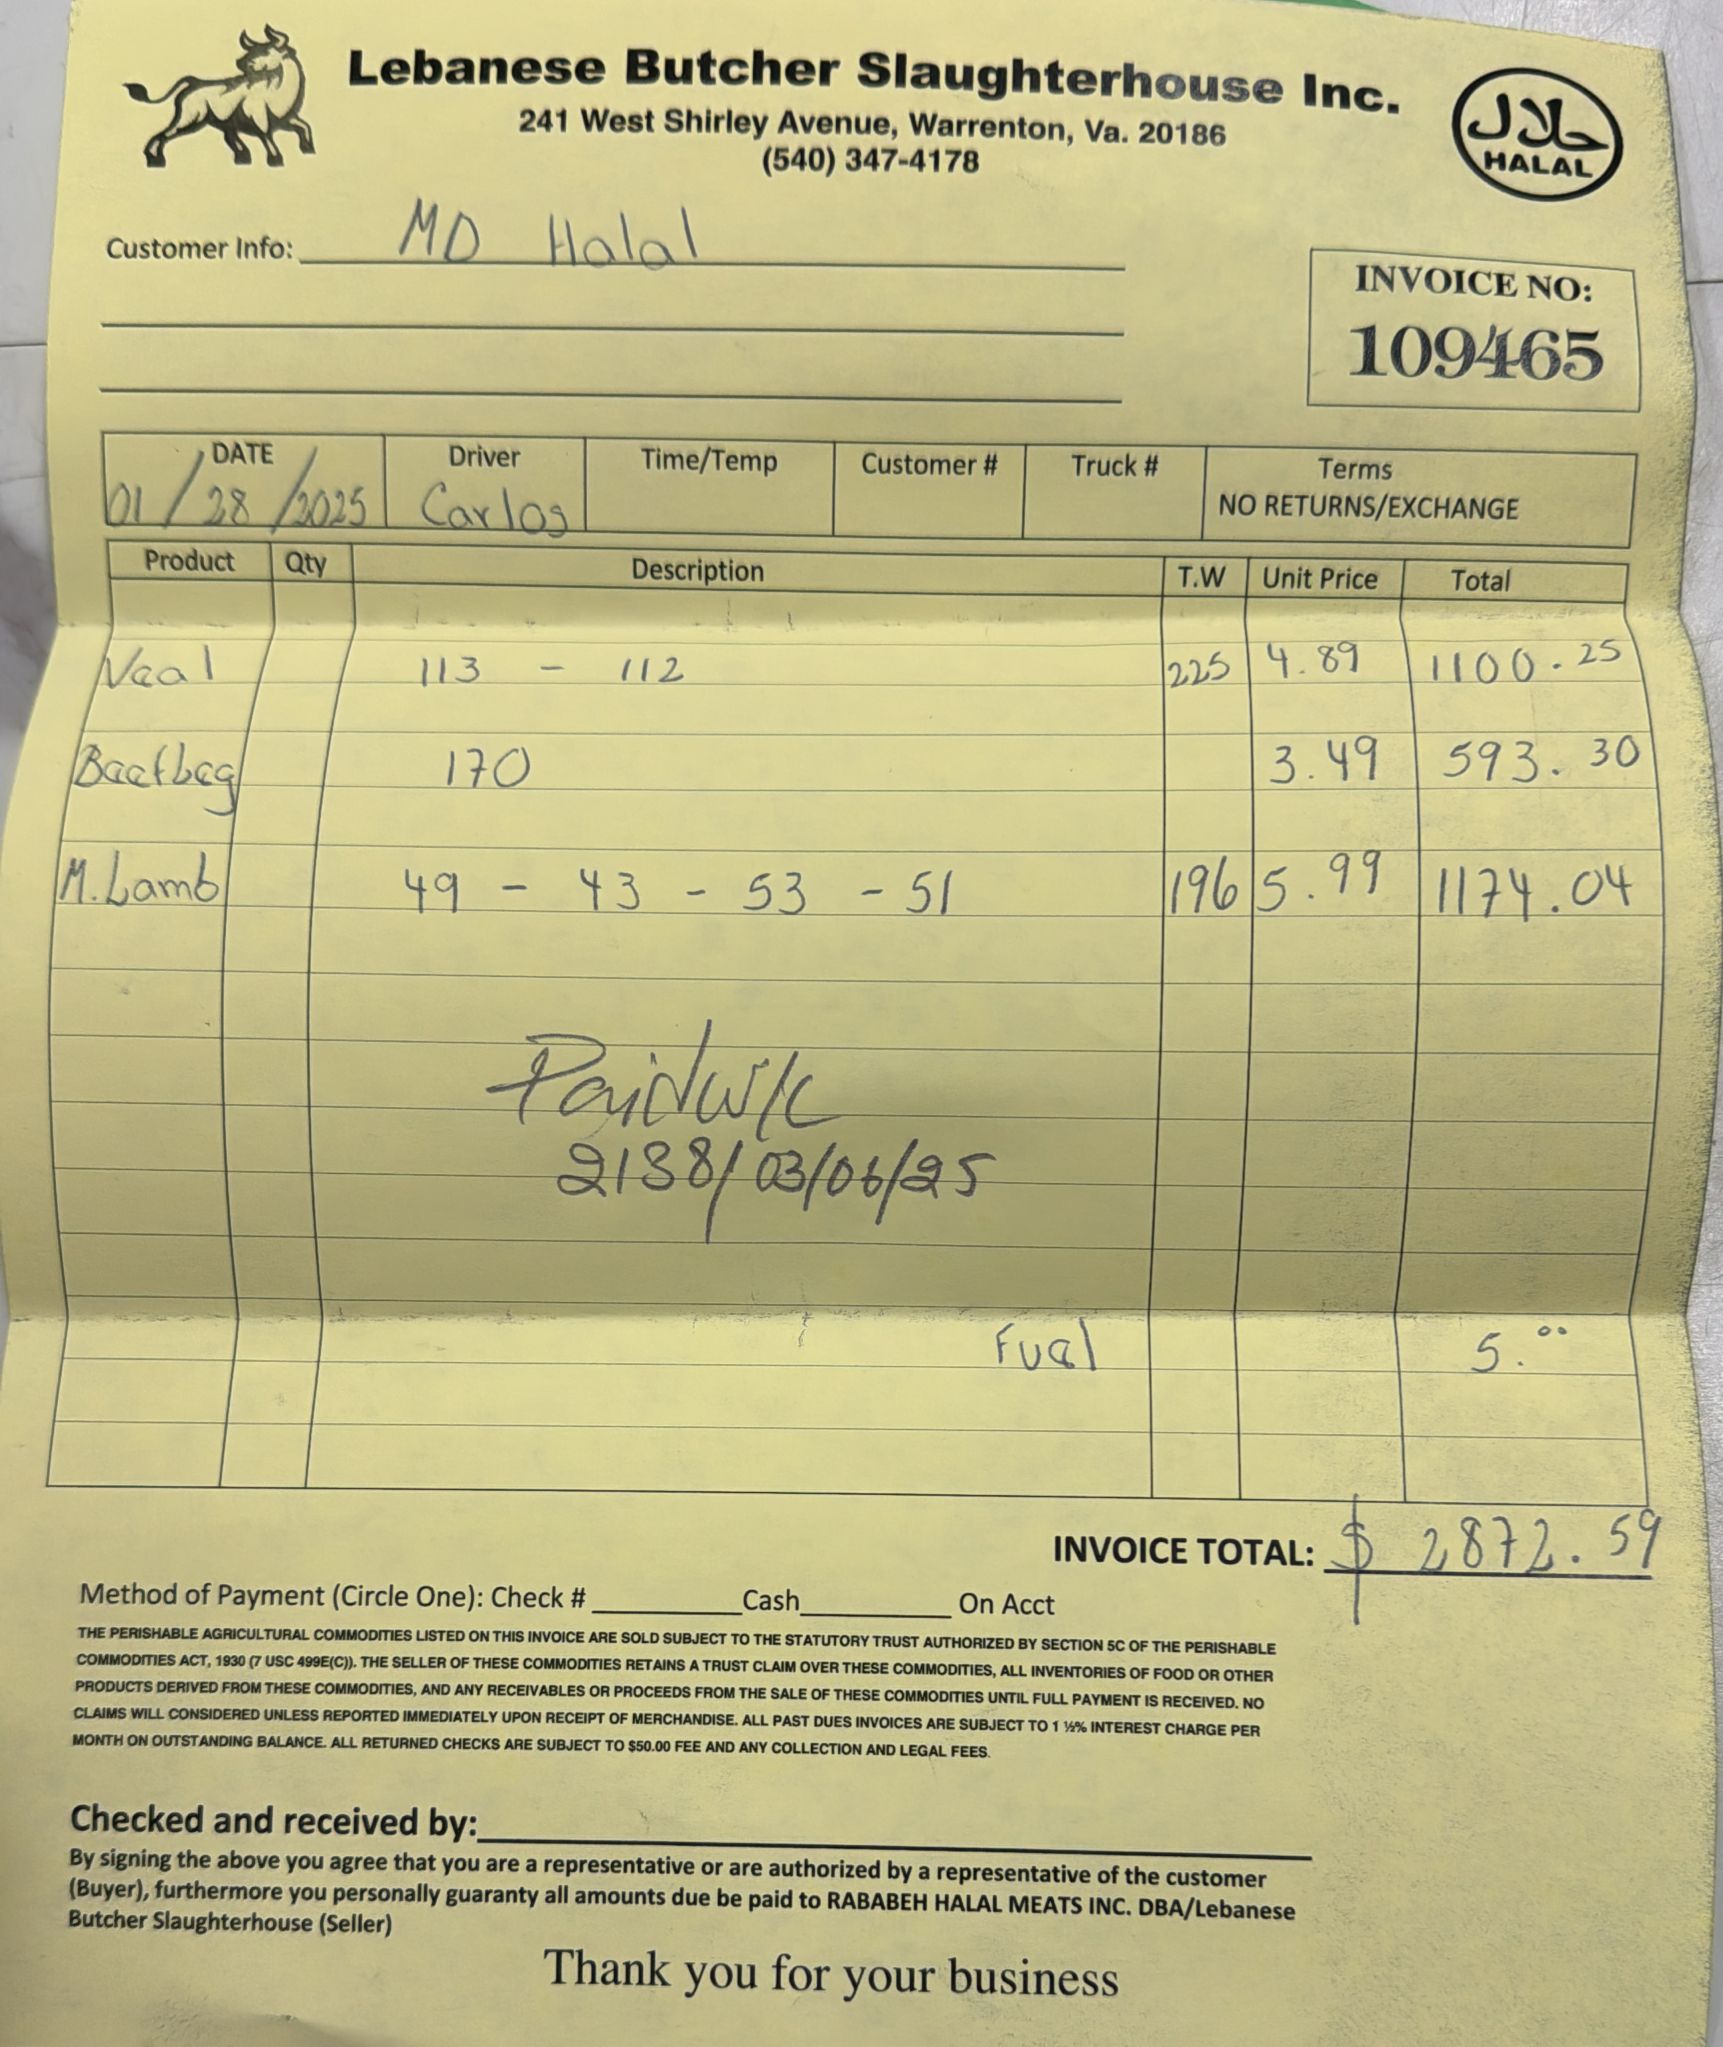 Lebanese Butcher Slaughterhouse Inc.
241 West Shirley Avenue, Warrenton, Va. 20186
(540) 347-4178
حلال
HALAL
Customer Info: MD Halal
INVOICE NO:
109465
DATE Driver Time/Temp Customer # Truck # Terms
01/28/2025 Carlos NO RETURNS/EXCHANGE
Product Qty Description T.W Unit Price Total
Veal 113 - 112 225 4.89 1100.25
Beefleg 170 3.49 593.30
M.Lamb 49 - 43 - 53 - 51 196 5.99 1174.04
Paid w/c
2138/03/06/25
Fuel 5.00
INVOICE TOTAL: $ 2872.59
Method of Payment (Circle One): Check # Cash On Acct
THE PERISHABLE AGRICULTURAL COMMODITIES LISTED ON THIS INVOICE ARE SOLD SUBJECT TO THE STATUTORY TRUST AUTHORIZED BY SECTION 5C OF THE PERISHABLE
COMMODITIES ACT, 1930 (7 USC 499E(C)). THE SELLER OF THESE COMMODITIES RETAINS A TRUST CLAIM OVER THESE COMMODITIES, ALL INVENTORIES OF FOOD OR OTHER
PRODUCTS DERIVED FROM THESE COMMODITIES, AND ANY RECEIVABLES OR PROCEEDS FROM THE SALE OF THESE COMMODITIES UNTIL FULL PAYMENT IS RECEIVED. NO
CLAIMS WILL CONSIDERED UNLESS REPORTED IMMEDIATELY UPON RECEIPT OF MERCHANDISE. ALL PAST DUES INVOICES ARE SUBJECT TO 1 ½% INTEREST CHARGE PER
MONTH ON OUTSTANDING BALANCE. ALL RETURNED CHECKS ARE SUBJECT TO $50.00 FEE AND ANY COLLECTION AND LEGAL FEES.
Checked and received by:
By signing the above you agree that you are a representative or are authorized by a representative of the customer
(Buyer), furthermore you personally guaranty all amounts due be paid to RABABEH HALAL MEATS INC. DBA/Lebanese
Butcher Slaughterhouse (Seller)
Thank you for your business